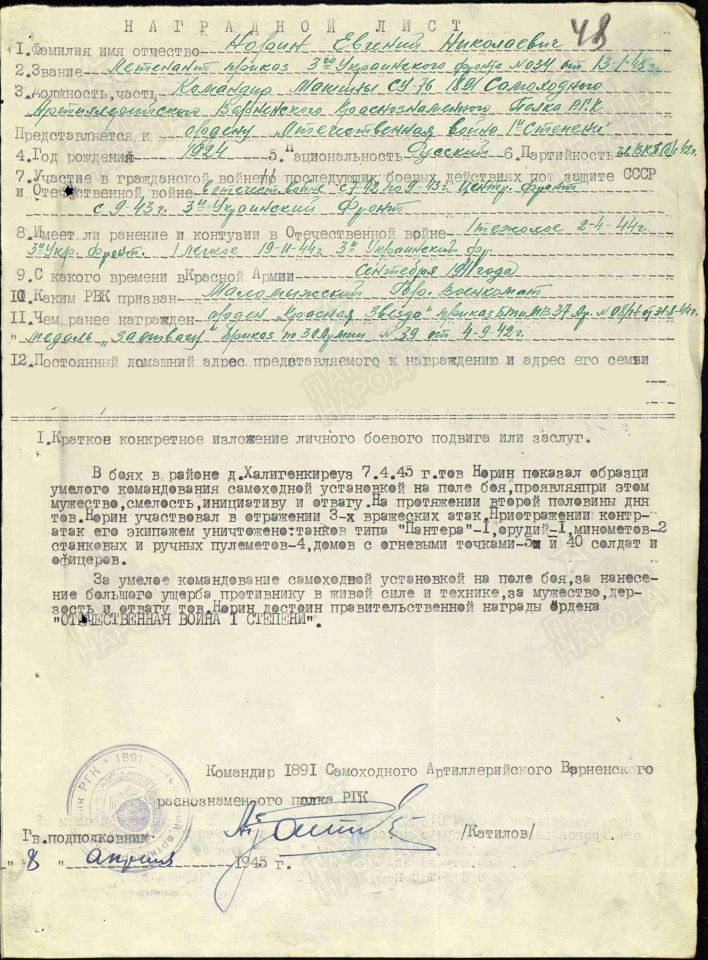 НАГРАДНОЙ ЛИСТ
48
1.Фамилия имя отчество Норин Евгений Николаевич
2.Звание Лейтенант приказ 3го Украинского фронта №034 от 13-1-45г.
3.Должность,часть Командир Машины СУ-76 1891 Самоходного
Артиллерийского Варненского Краснознаменного Полка РГК
Представляется к ордену "Отечественная война 1й Степени"
4.Год рождения 1924 5.Национальность Русский 6.Партийность
7.Участие в гражданской войне,по последующих боевых действиях пот защите СССР
и Отечественной войне в отечеств войне с 7-42 по 9-43г Центр. фронт
с 9-43г. 3й Украинский Фронт
8.Имеет ли ранение и контузии в Отечественной войне 1 тежолое 2-4-44г.
3й Укр. фронт. 1 легкое 19-11-44г. 3й Украинский фр.
9.С какого времени вКрасной Армии Сентября 1941 года
10 Каким РВК призван Гор. Военкомат
11.Чем ранее награжден орден "Красная Звезда" приказ
" медаль "За отвагу" приказ по 30 Армии №39 от 4-9-42г.
12.Постоянный домашний адрес представляемого к награждению и адрес его семьи
I.Краткое конкретное изложение личного боевого подвига или заслуг.
В боях в районе д.Халигенкиреуз 7.4.45 г.тов Норин показал образци
умелого командования самоходной установкой на поле боя,проявляяпри этом
мужество,смелость,инициативу и отвагу.На протяжении второй половины дня
тов.Норин участвовал в отражении 3-х вражеских атак.Приотражении контр-
атак его экипажем уничтожено:танков типа "Пантера"-I,орудий-I,минометов-2
станковых и ручных пулеметов-4,домов с огневыми точками-5и и 40 солдат и
офицеров.
За умелое командование самоходной установкой на поле боя,за нанесе-
ние большого ущерба противнику в живой силе и технике,за мужество,дер-
зость и отвагу тов.Норин достоин правительственной награды Ордена
"ОТЕЧЕСТВЕННАЯ ВОЙНА I СТЕПЕНИ".
Командир 1891 Самоходного Артиллерийского Варненского
раснознаменого полка РГК
Гв.подполковник- /Катилов/
" 8 " апреля 1945 г.
РГК * 1891
ПАМЯТЬ НАРОДА